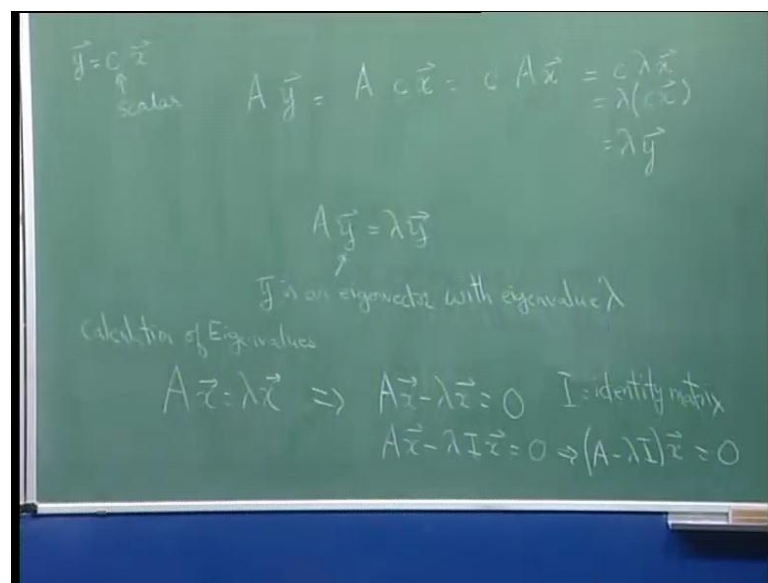 y⃗ = c x⃗
↑
scalar
A y⃗ = A c x⃗ = c A x⃗ = c λ x⃗
= λ(c x⃗)
= λ y⃗
A y⃗ = λ y⃗
↗
y⃗ is an eigenvector with eigenvalue λ
Calculation of Eigenvalues
A x⃗ = λ x⃗ ⇒ A x⃗ - λ x⃗ = 0 I = identity matrix
A x⃗ - λ I x⃗ = 0 → (A - λ I) x⃗ = 0